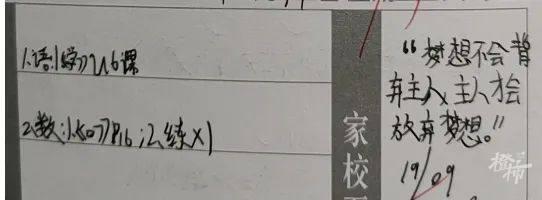 1.语:《学》U6课
2.数:《知》P16;2.练×1
家校
"梦想不会背
弃主人,主人才会
放弃梦想。"
19/09
橙柿